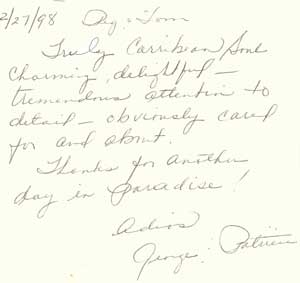 2/27/98 Peg & Tom
Truly Carribean Soul
Charming, delightful —
tremendous attention to
detail — obviously cared
for and about.
Thanks for another
day in paradise!
Adios
George & Patricia